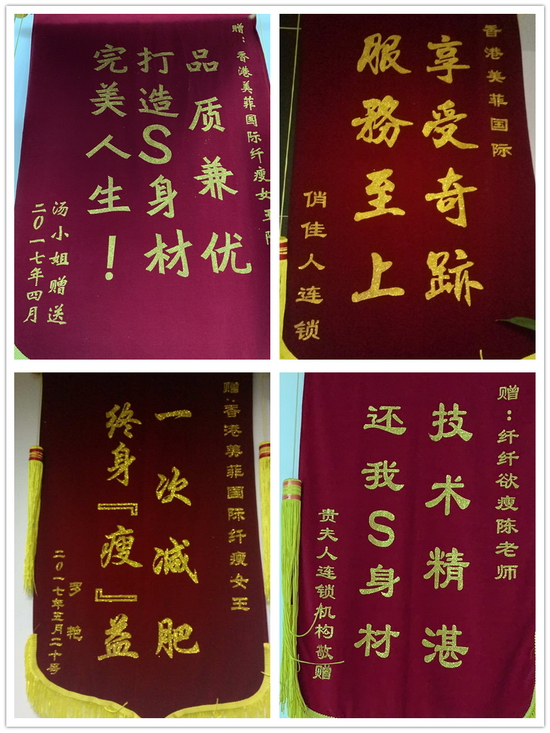 赠：香港美菲国际纤瘦女王陈
品质兼优
打造S身材
完美人生！
汤小姐赠送
二〇一七年四月
香港美菲国际
享受奇跡
服務至上
俏佳人连锁
赠：香港美菲国际纤瘦女王
一次减肥
终身『瘦』益
罗艳
二〇一七年三月二十号
赠：纤纤欲瘦陈老师
技术精湛
还我S身材
贵夫人连锁机构敬赠